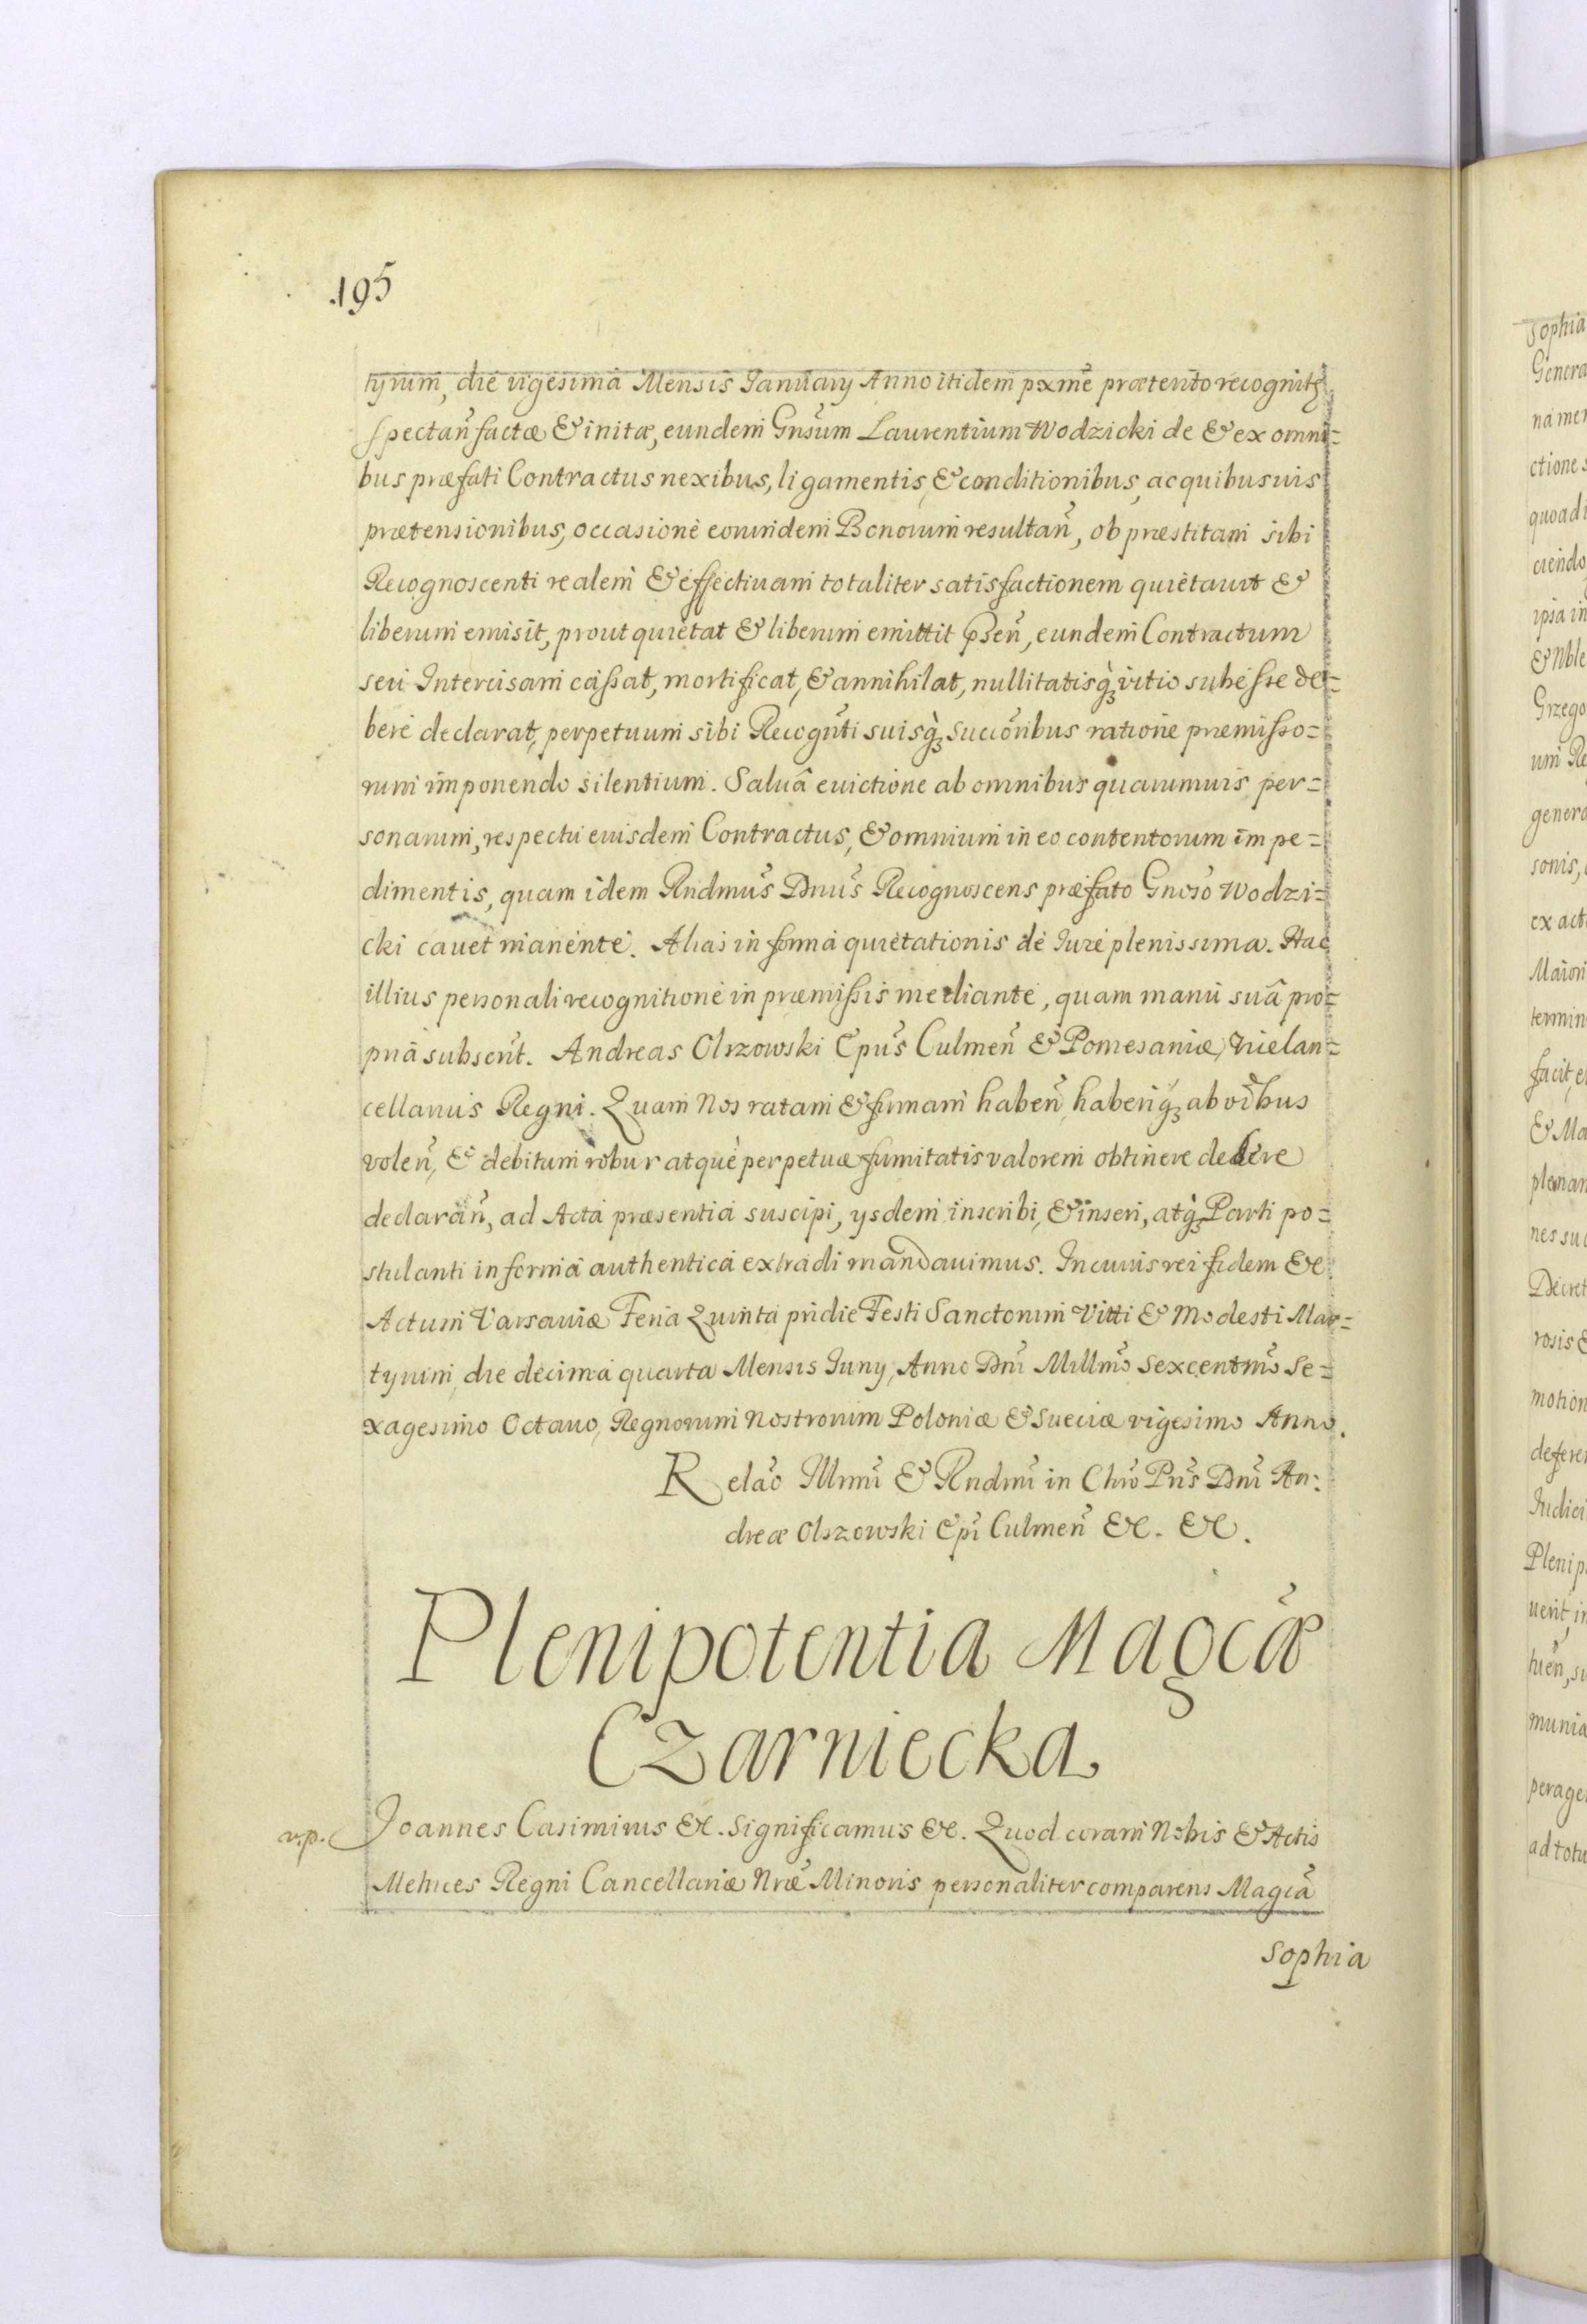 195
tyrum, die vigesima Mensis Ianuary Anno itidem pxme prætento recognitę
spectan̄ factæ & initæ, eundem Gnsum Laurentium Wodzicki de & ex omni=
bus præfati Contractus nexibus, ligamentis, & conditionibus, ac quibusuis
prætensionibus, occasione eorundem Bonorum resultan̄, ob præstitam sibi
Recognoscenti realem & effectiuam totaliter satisfactionem quietauit &
liberum emisit, prout quietat & liberum emittit pṅsen̄, eundem Contractum
seu Intercisam cassat, mortificat, & annihilat, nullitatisq̀ꝫ vitio subesse de=
bere declarat, perpetuum sibi Recognti suisq̀ꝫ succōribus ratione præmisso=
rum imponendo silentium. Saluâ euictione ab omnibus quarumuis per=
sonarum, respectu eiusdem Contractus, & omnium in eo contentorum impe=
dimentis, quam idem Rndmus Dnus Recognoscens præfato Gnoso Wodzi=
cki cauet manente. Alias in forma quietationis de Iure plenissima. Hac
illius personali recognitione in præmissis mediante, quam manu suâ pro=
pria subscrit. Andreas Olszowski Epus Culmen̄ & Pomesaniæ, Viclan=
cellarius Regni. Quam Nos ratam & firmam haben̄, haberiq̀ꝫ ab oībus
volen̄, & debitum robur atque perpetuæ firmitatis valorem obtinere debere
declaran̄, ad Acta præsentia suscipi, ysdem inscribi, & inseri, atq̀ꝫ Parti po=
stulanti in forma authentica extradi mandauimus. In cuius rei fidem &c
Actum Varsauiæ Feria Quinta pridie Festi Sanctorum Vitti & Modesti Mar=
tyrum, die decima quarta Mensis Iuny, Anno Dni Millmo Sexcentmo Se=
xagesimo Octauo, Regnorum Nostrorum Poloniæ & Sueciæ vigesimo Anno.
Relao Illmi & Rndmi in Chro Pris Dni An:
dreæ Olszowski Epi Culmen̄ &c. &c.
Plenipotentia Magcæ
Czarniecka
v.p. Joannes Casimirus &c. Significamus &c. Quod coram Nobis & Actis
Metrices Regni Cancellariæ Nræ Minoris personaliter comparens Magca
Sophia